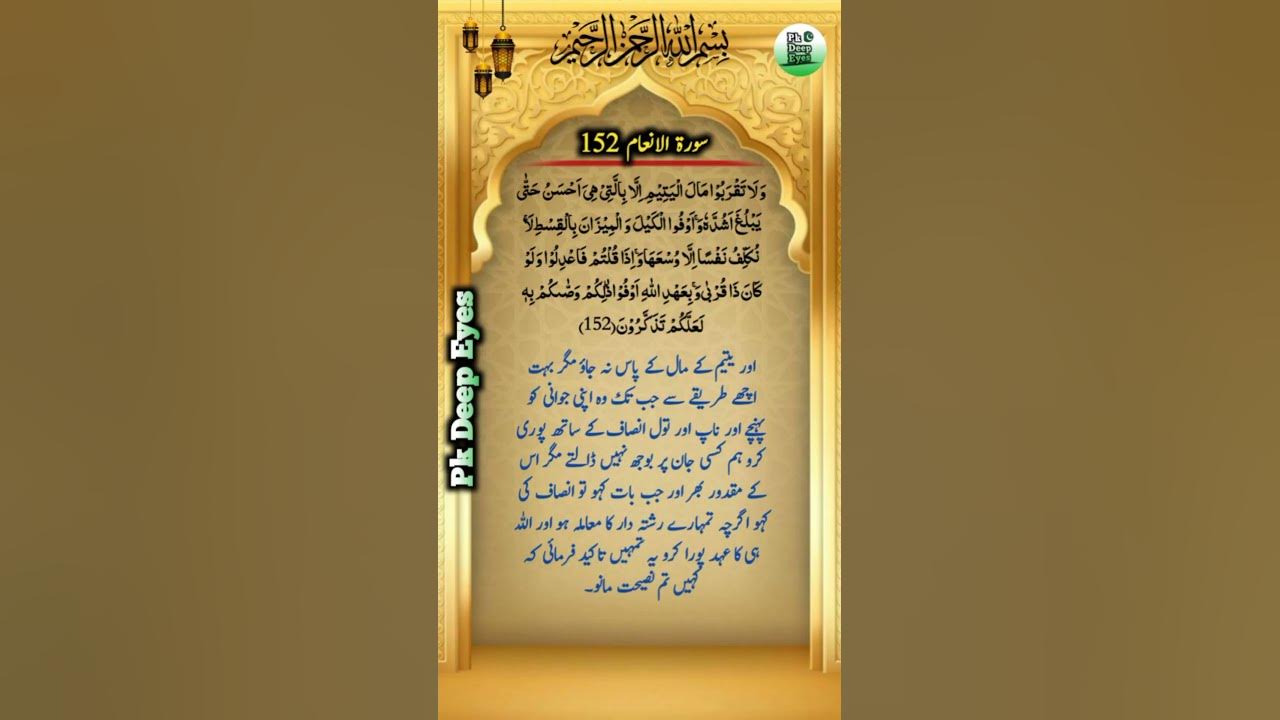 بِسْمِ اللهِ الرَّحْمٰنِ الرَّحِيْمِ
Pk
Deep
Eyes
سورة الانعام 152
وَلَا تَقْرَبُوْا مَالَ الْيَتِيْمِ اِلَّا بِالَّتِيْ هِيَ اَحْسَنُ حَتّٰى
يَبْلُغَ اَشُدَّهٗ وَ اَوْفُوا الْكَيْلَ وَ الْمِيْزَانَ بِالْقِسْطِ لَا
نُكَلِّفُ نَفْسًا اِلَّا وُسْعَهَا وَ اِذَا قُلْتُمْ فَاعْدِلُوْا وَ لَوْ
كَانَ ذَا قُرْبٰى وَ بِعَهْدِ اللهِ اَوْفُوْا ذٰلِكُمْ وَصّٰىكُمْ بِهٖ
لَعَلَّكُمْ تَذَكَّرُوْنَ(152)
اور یتیم کے مال کے پاس نہ جاؤ مگر بہت
اچھے طریقے سے جب تک وہ اپنی جوانی کو
پہنچے اور ناپ اور تول انصاف کے ساتھ پوری
کرو ہم کسی جان پر بوجھ نہیں ڈالتے مگر اس
کے مقدور بھر اور جب بات کہو تو انصاف کی
کہو اگرچہ تمہارے رشتہ دار کا معاملہ ہو اور اللہ
ہی کا عہد پورا کرو یہ تمہیں تاکید فرمائی کہ
کہیں تم نصیحت مانو۔
Pk Deep Eyes